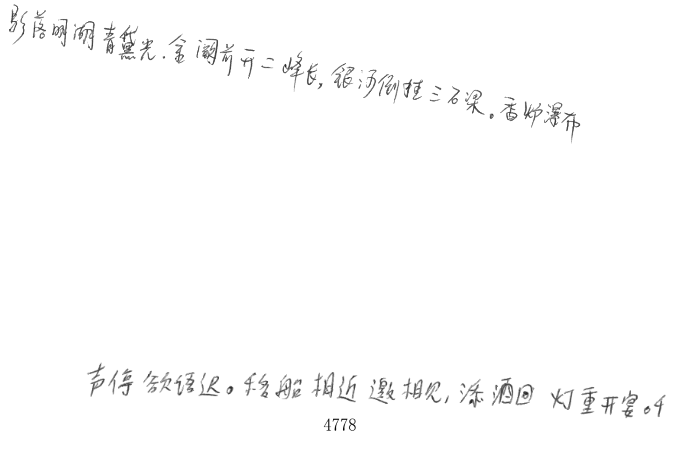 影落明湖青黛光.金阙前开二峰长,银河倒挂三石梁。香炉瀑布
声停欲语迟。移船相近邀相见,添酒回灯重开宴。千
4778